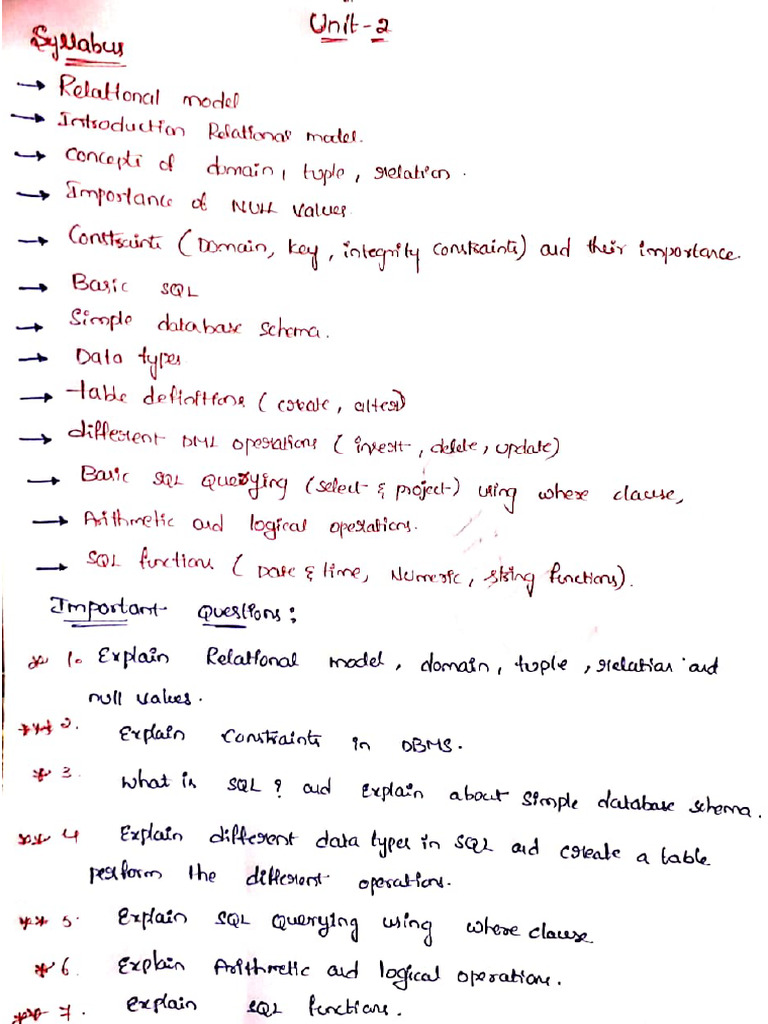 Unit-2
Syllabus
→ Relational model
→ Introduction Relational model.
→ concepts of domain, tuple, relation.
→ Importance of NULL values
→ Constraints (Domain, key, integrity constraints) and their importance.
→ Basic SQL
→ Simple database schema.
→ Data types
→ table definitions (create, alter)
→ different DML operations (insert, delete, update)
→ Basic SQL Querying (select & project) using where clause,
→ Arithmetic and logical operations.
→ SQL functions (Date & time, Numeric, string functions).
Important Questions:
* 1. Explain Relational model, domain, tuple, relation and
null values.
*** 2. Explain Constraints in DBMS.
* 3. What is SQL? and Explain about simple database schema.
** 4 Explain different data types in SQL and create a table
perform the different operations.
** 5. Explain SQL Querying using where clause
* 6. Explain Arithmetic and logical operations.
*** 7. Explain SQL functions.